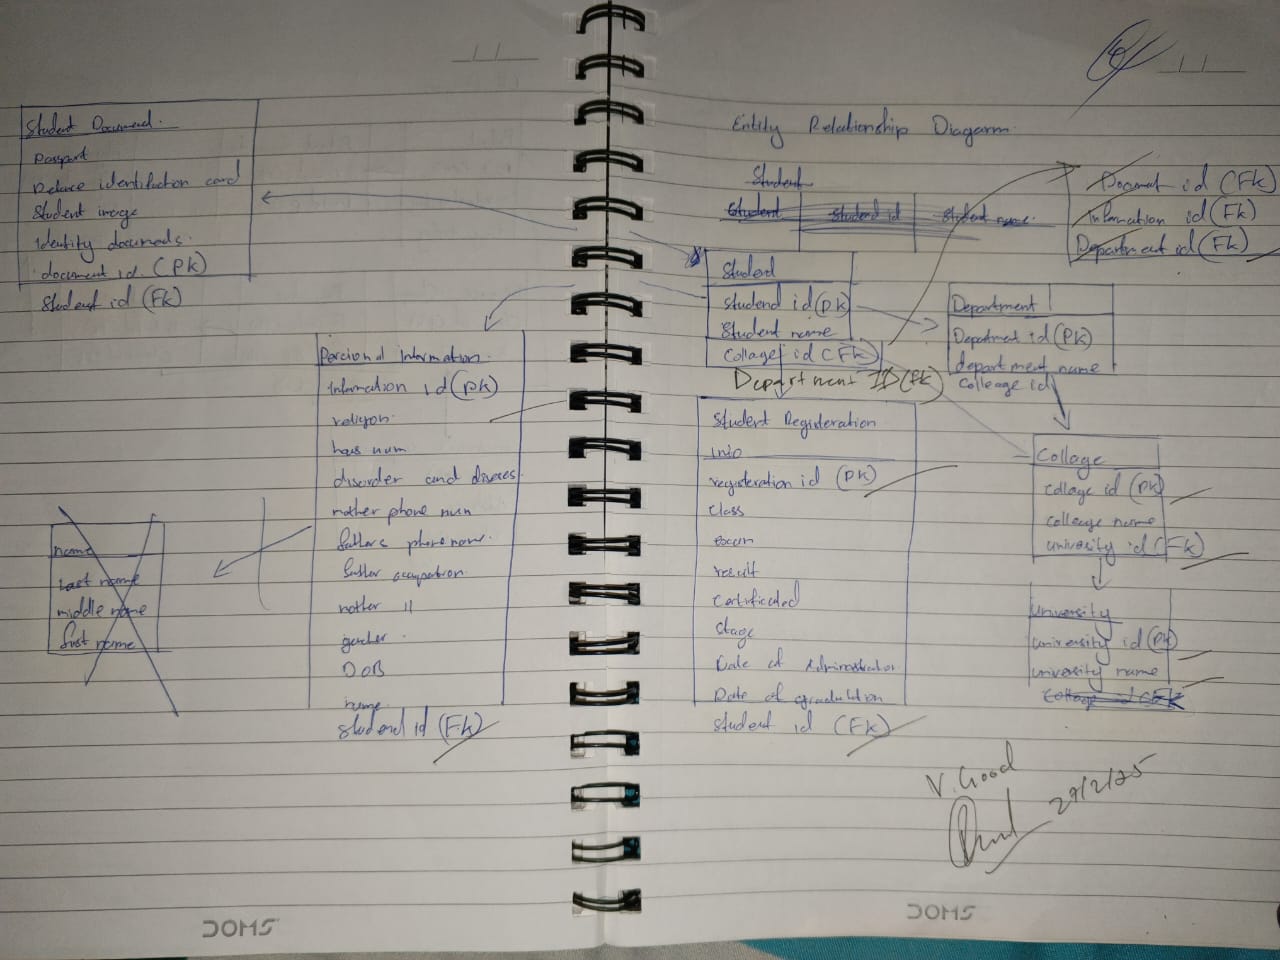 Student Document.
Passport
identification card
Student image
Identity documents.
document id. (PK)
Student id (FK)
Percional Information.
Information id (PK)
religon.
hous num
disorder and diseces.
mother phone num
fathers phone num.
father occupation.
mother 11
gender.
DOB
name
student id (FK)
name
Last name
middle name
first name
DOMS
Entity Relationship Diagarm
Student
Student
Student id
Student name.
Document id (FK)
Information id (FK)
Department id (FK)
Student
Student id (PK)
Student name
Collage id (FK)
Department ID (FK)
Department
Department id (PK)
department name
Colleage id
Student Registeration
Info
registeration id (PK)
Class
exam
result
Certificated
Stage
Date of Administration
Date of gradulition
Student id (FK)
Collage
Collage id (PK)
colleage name
university id (FK)
University
university id (PK)
university name
Collage id (FK
V. Good
27/2/25
DOMS